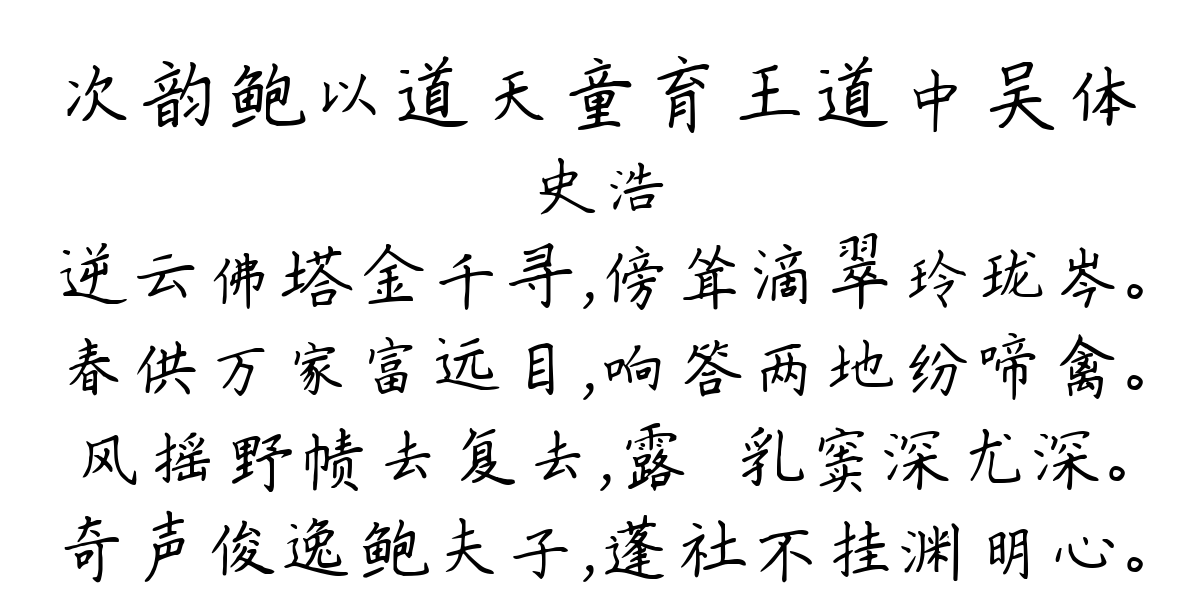 次韵鲍以道天童育王道中吴体
史浩
逆云佛塔金千寻,傍耸滴翠玲珑岑。
春供万家富远目,响答两地纷啼禽。
风摇野帻去复去,露 乳窦深尤深。
奇声俊逸鲍夫子,蓬社不挂渊明心。